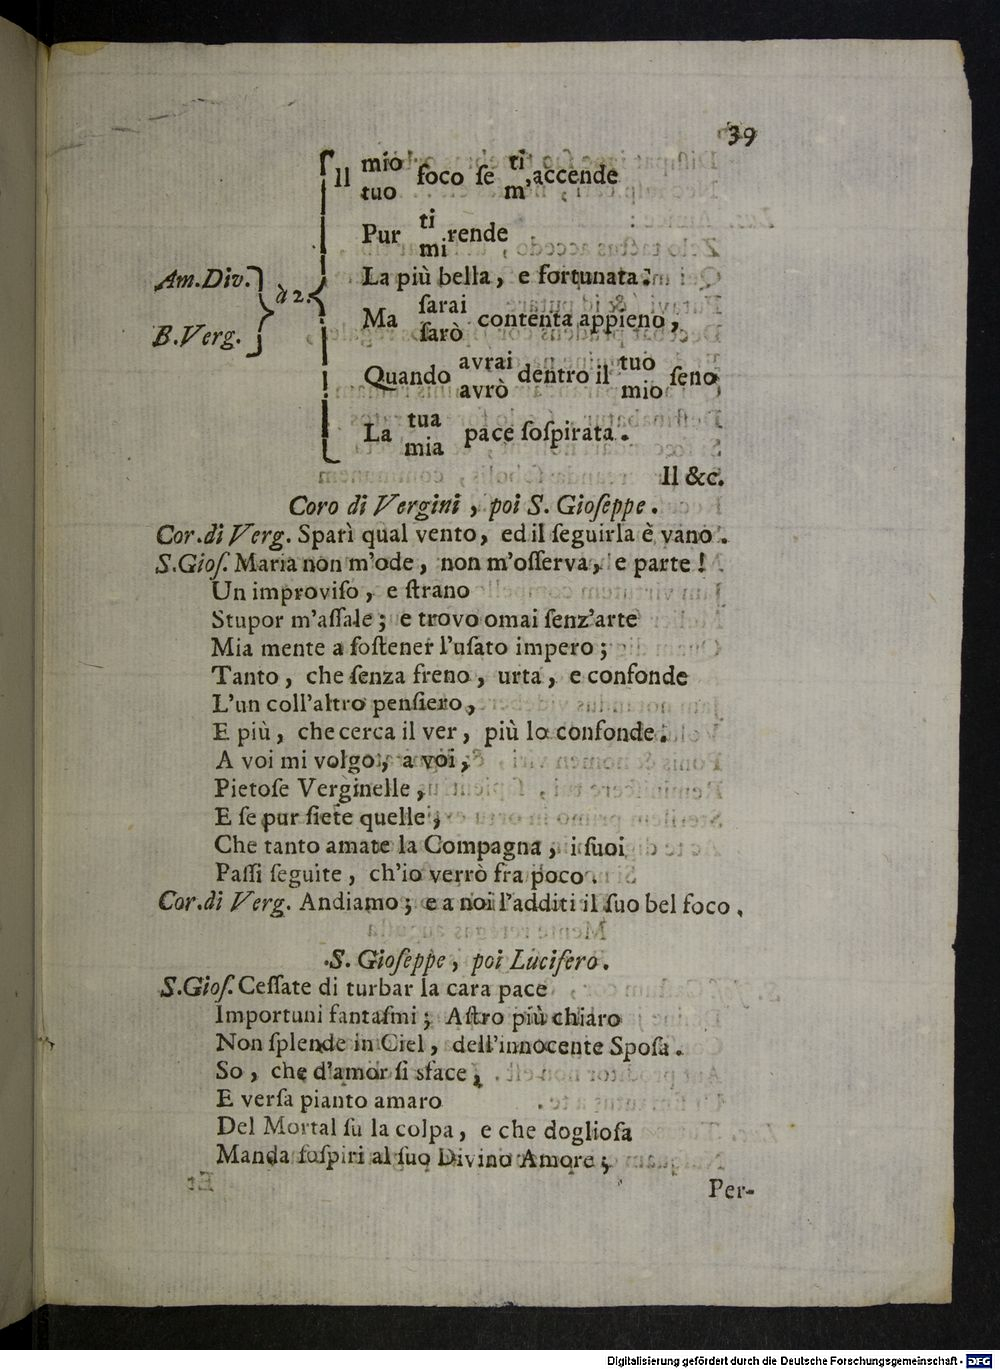 39
Il mio/tuo foco se ti/m', accende
Pur ti/mi rende
La più bella, e fortunata.
Am.Div. B.Verg. à 2.
Ma ſarai/ſarò contenta appieno,
Quando avrai/avrò dentro il tuo/mio ſeno
La tua/mia pace ſoſpirata.
Il &c.
Coro di Vergini, poi S. Gioſeppe.
Cor.di Verg. Sparì qual vento, ed il ſeguirla è vano.
S.Gioſ. Maria non m'ode, non m'oſſerva, e parte!
Un improviſo, e ſtrano
Stupor m'aſſale; e trovo omai ſenz'arte
Mia mente a ſoſtener l'uſato impero;
Tanto, che ſenza freno, urta, e confonde
L'un coll'altro penſiero,
E più, che cerca il ver, più lo confonde.
A voi mi volgo, a voi,
Pietoſe Verginelle,
E ſe pur ſiete quelle,
Che tanto amate la Compagna, i ſuoi
Paſſi ſeguite, ch'io verrò fra poco.
Cor.di Verg. Andiamo; e a noi l'additi il ſuo bel foco.
S. Gioſeppe, poi Lucifero.
S.Gioſ. Ceſſate di turbar la cara pace
Importuni fantaſmi; Aſtro più chiaro
Non ſplende in Ciel, dell'innocente Spoſa.
So, che d'amor ſi sface,
E verſa pianto amaro
Del Mortal ſu la colpa, e che doglioſa
Manda ſoſpiri al ſuo Divino Amore;
Per-
Digitalisierung gefördert durch die Deutsche Forschungsgemeinschaft - DFG